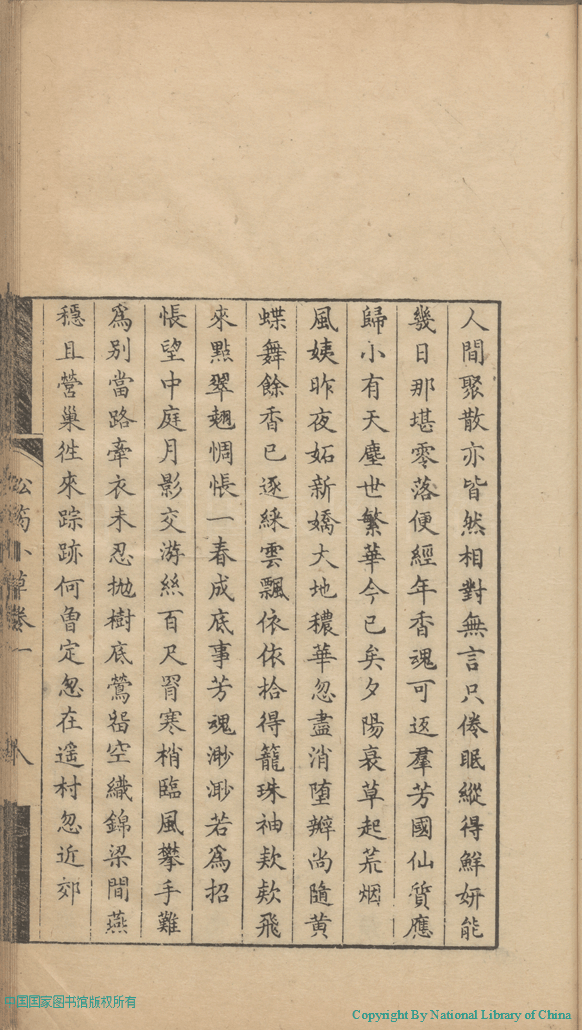 人間聚散亦皆然相對無言只倦眠縱得鮮妍能
幾日那堪零落便經年香魂可返羣芳國仙質應
歸小有天塵世繁華今已矣夕陽衰草起荒烟
風姨昨夜妬新嬌大地穠華忽盡消墮瓣尚隨黄
蝶舞餘香已逐綵雲飄依依拾得籠珠袖欵欵飛
來點翠翹惆悵一春成底事芳魂渺渺若爲招
悵望中庭月影交游絲百尺罥寒梢臨風攀手難
爲別當路牽衣未忍抛樹底鶯梭空織錦梁間燕
穩且營巢徃來踪跡何曾定忽在遥村忽近郊
卷一
八
中国国家图书馆版权所有
Copyright By National Library of China